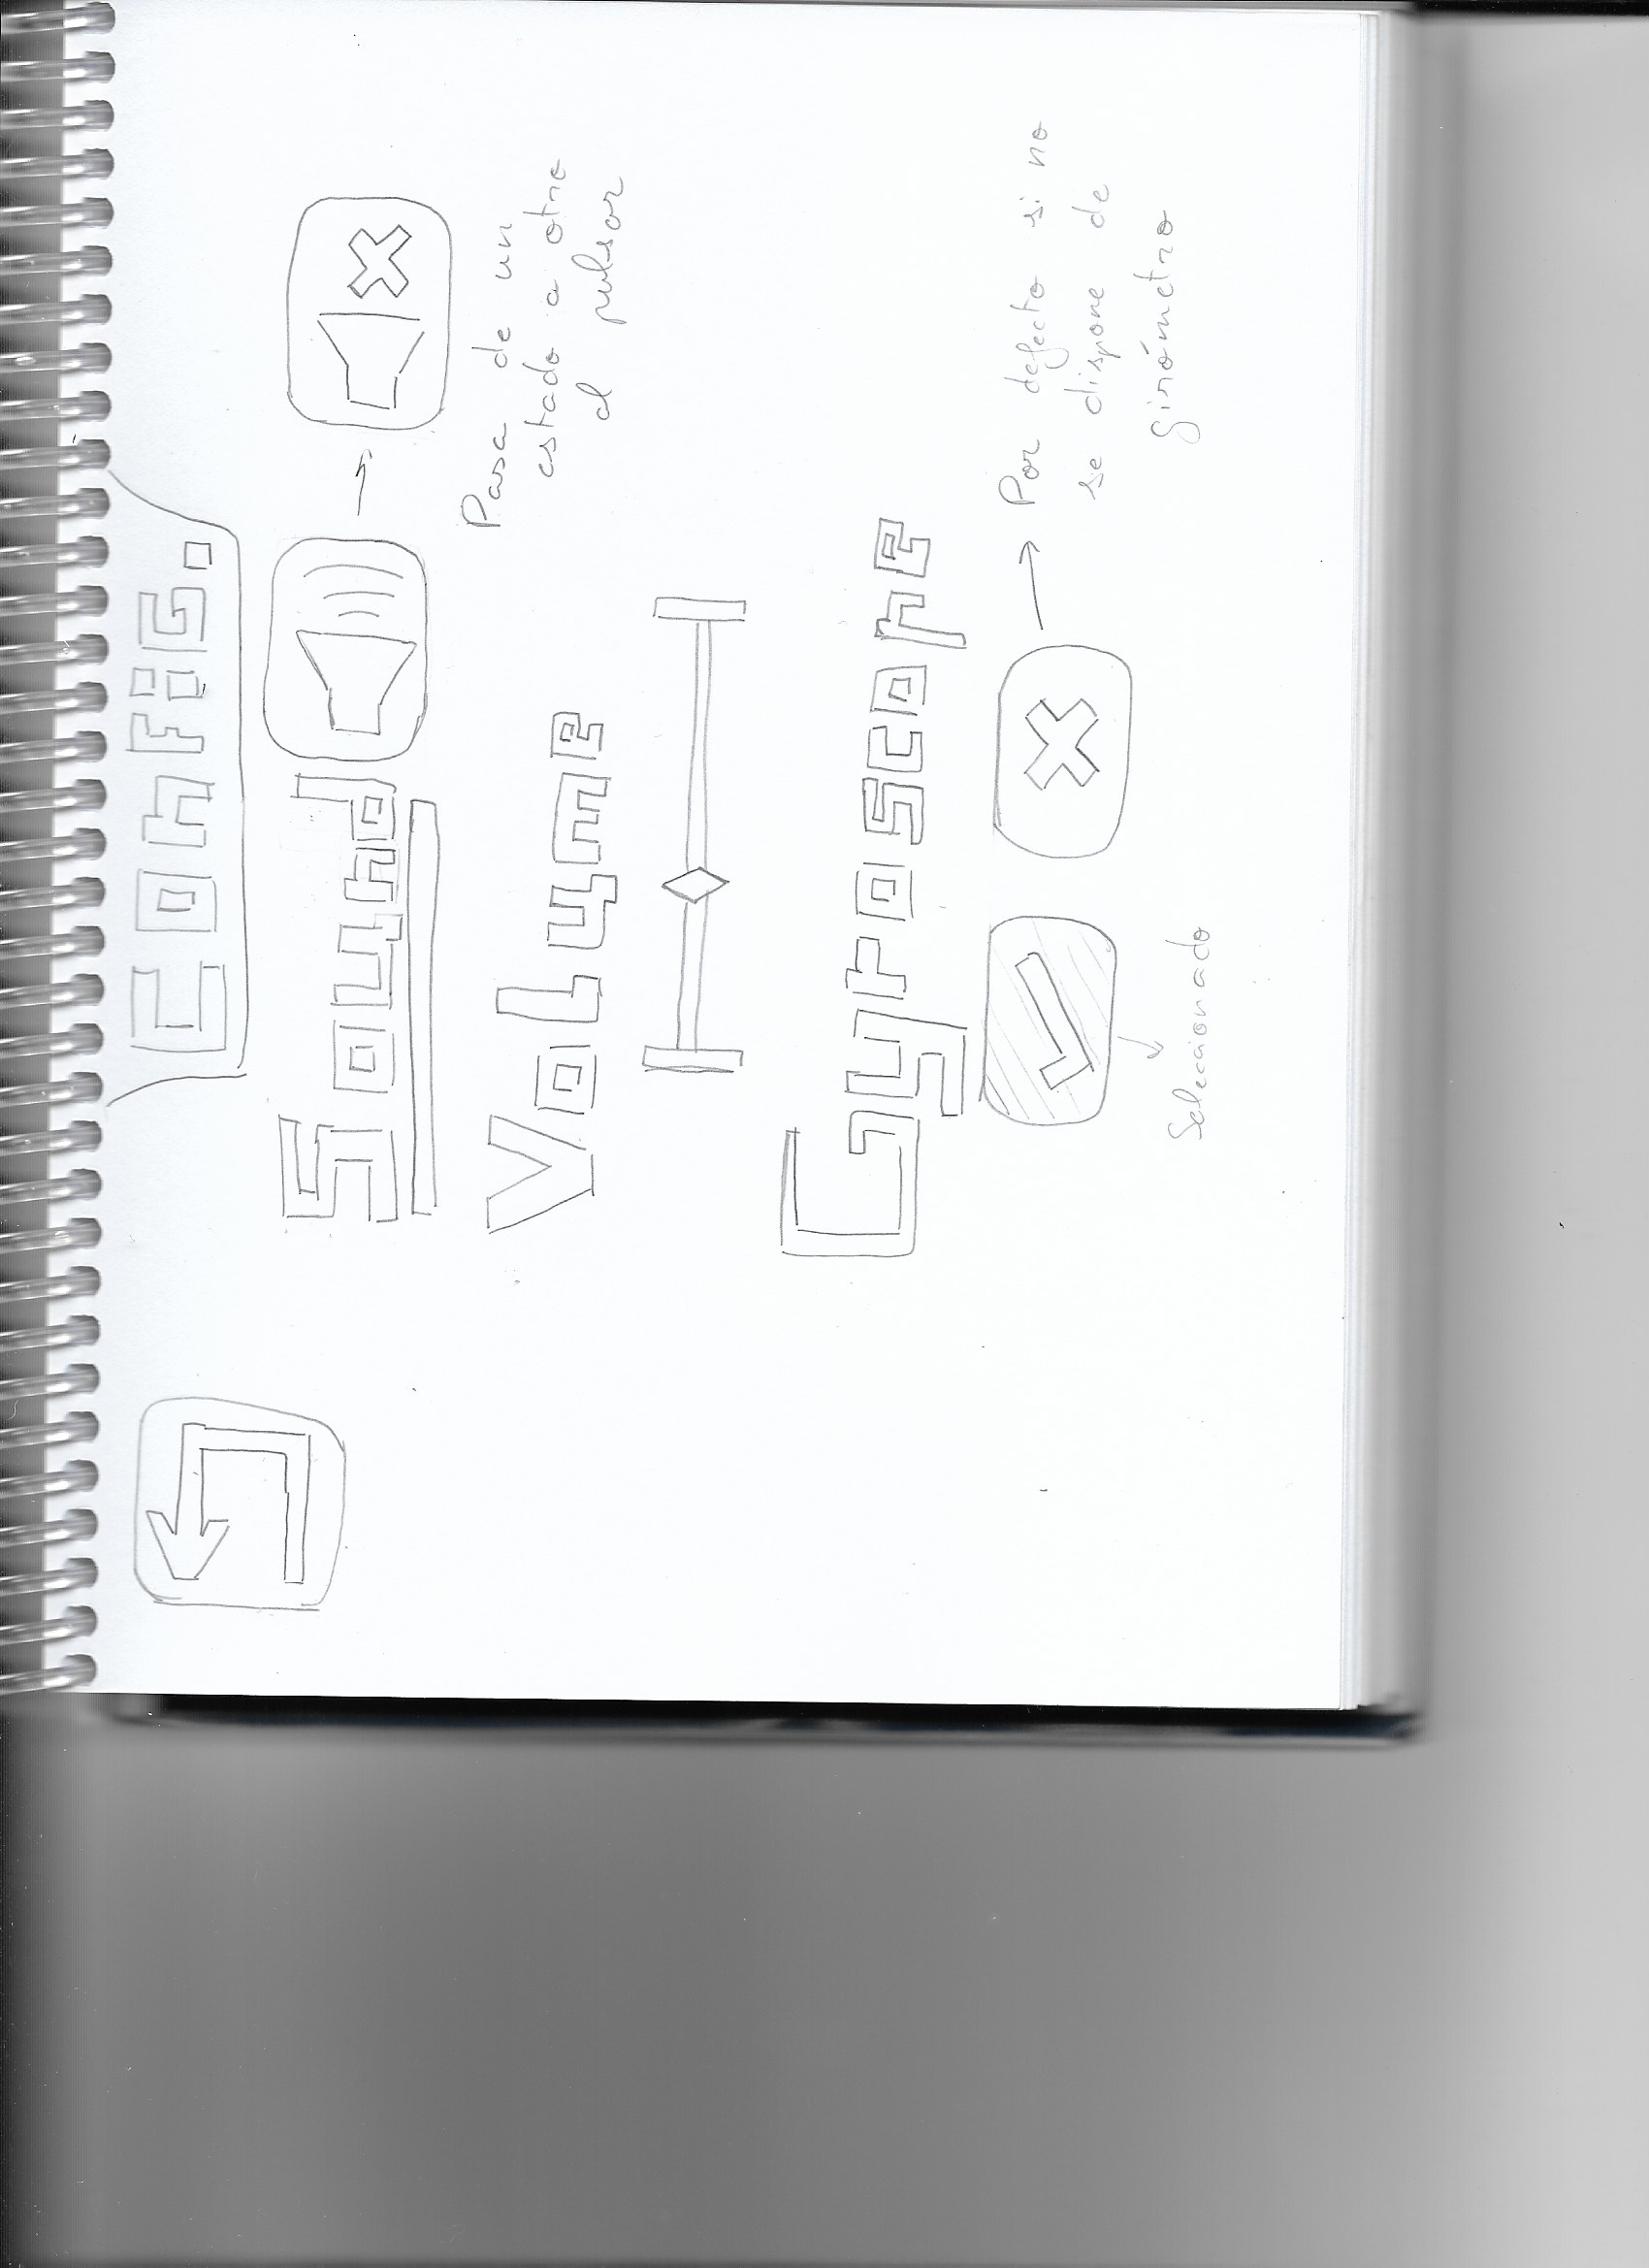 Config.
Sound
Pasa de un
estado a otro
al pulsar
Volume
Gyroscope
Por defecto si no
se dispone de
Girómetro
Seleccionado